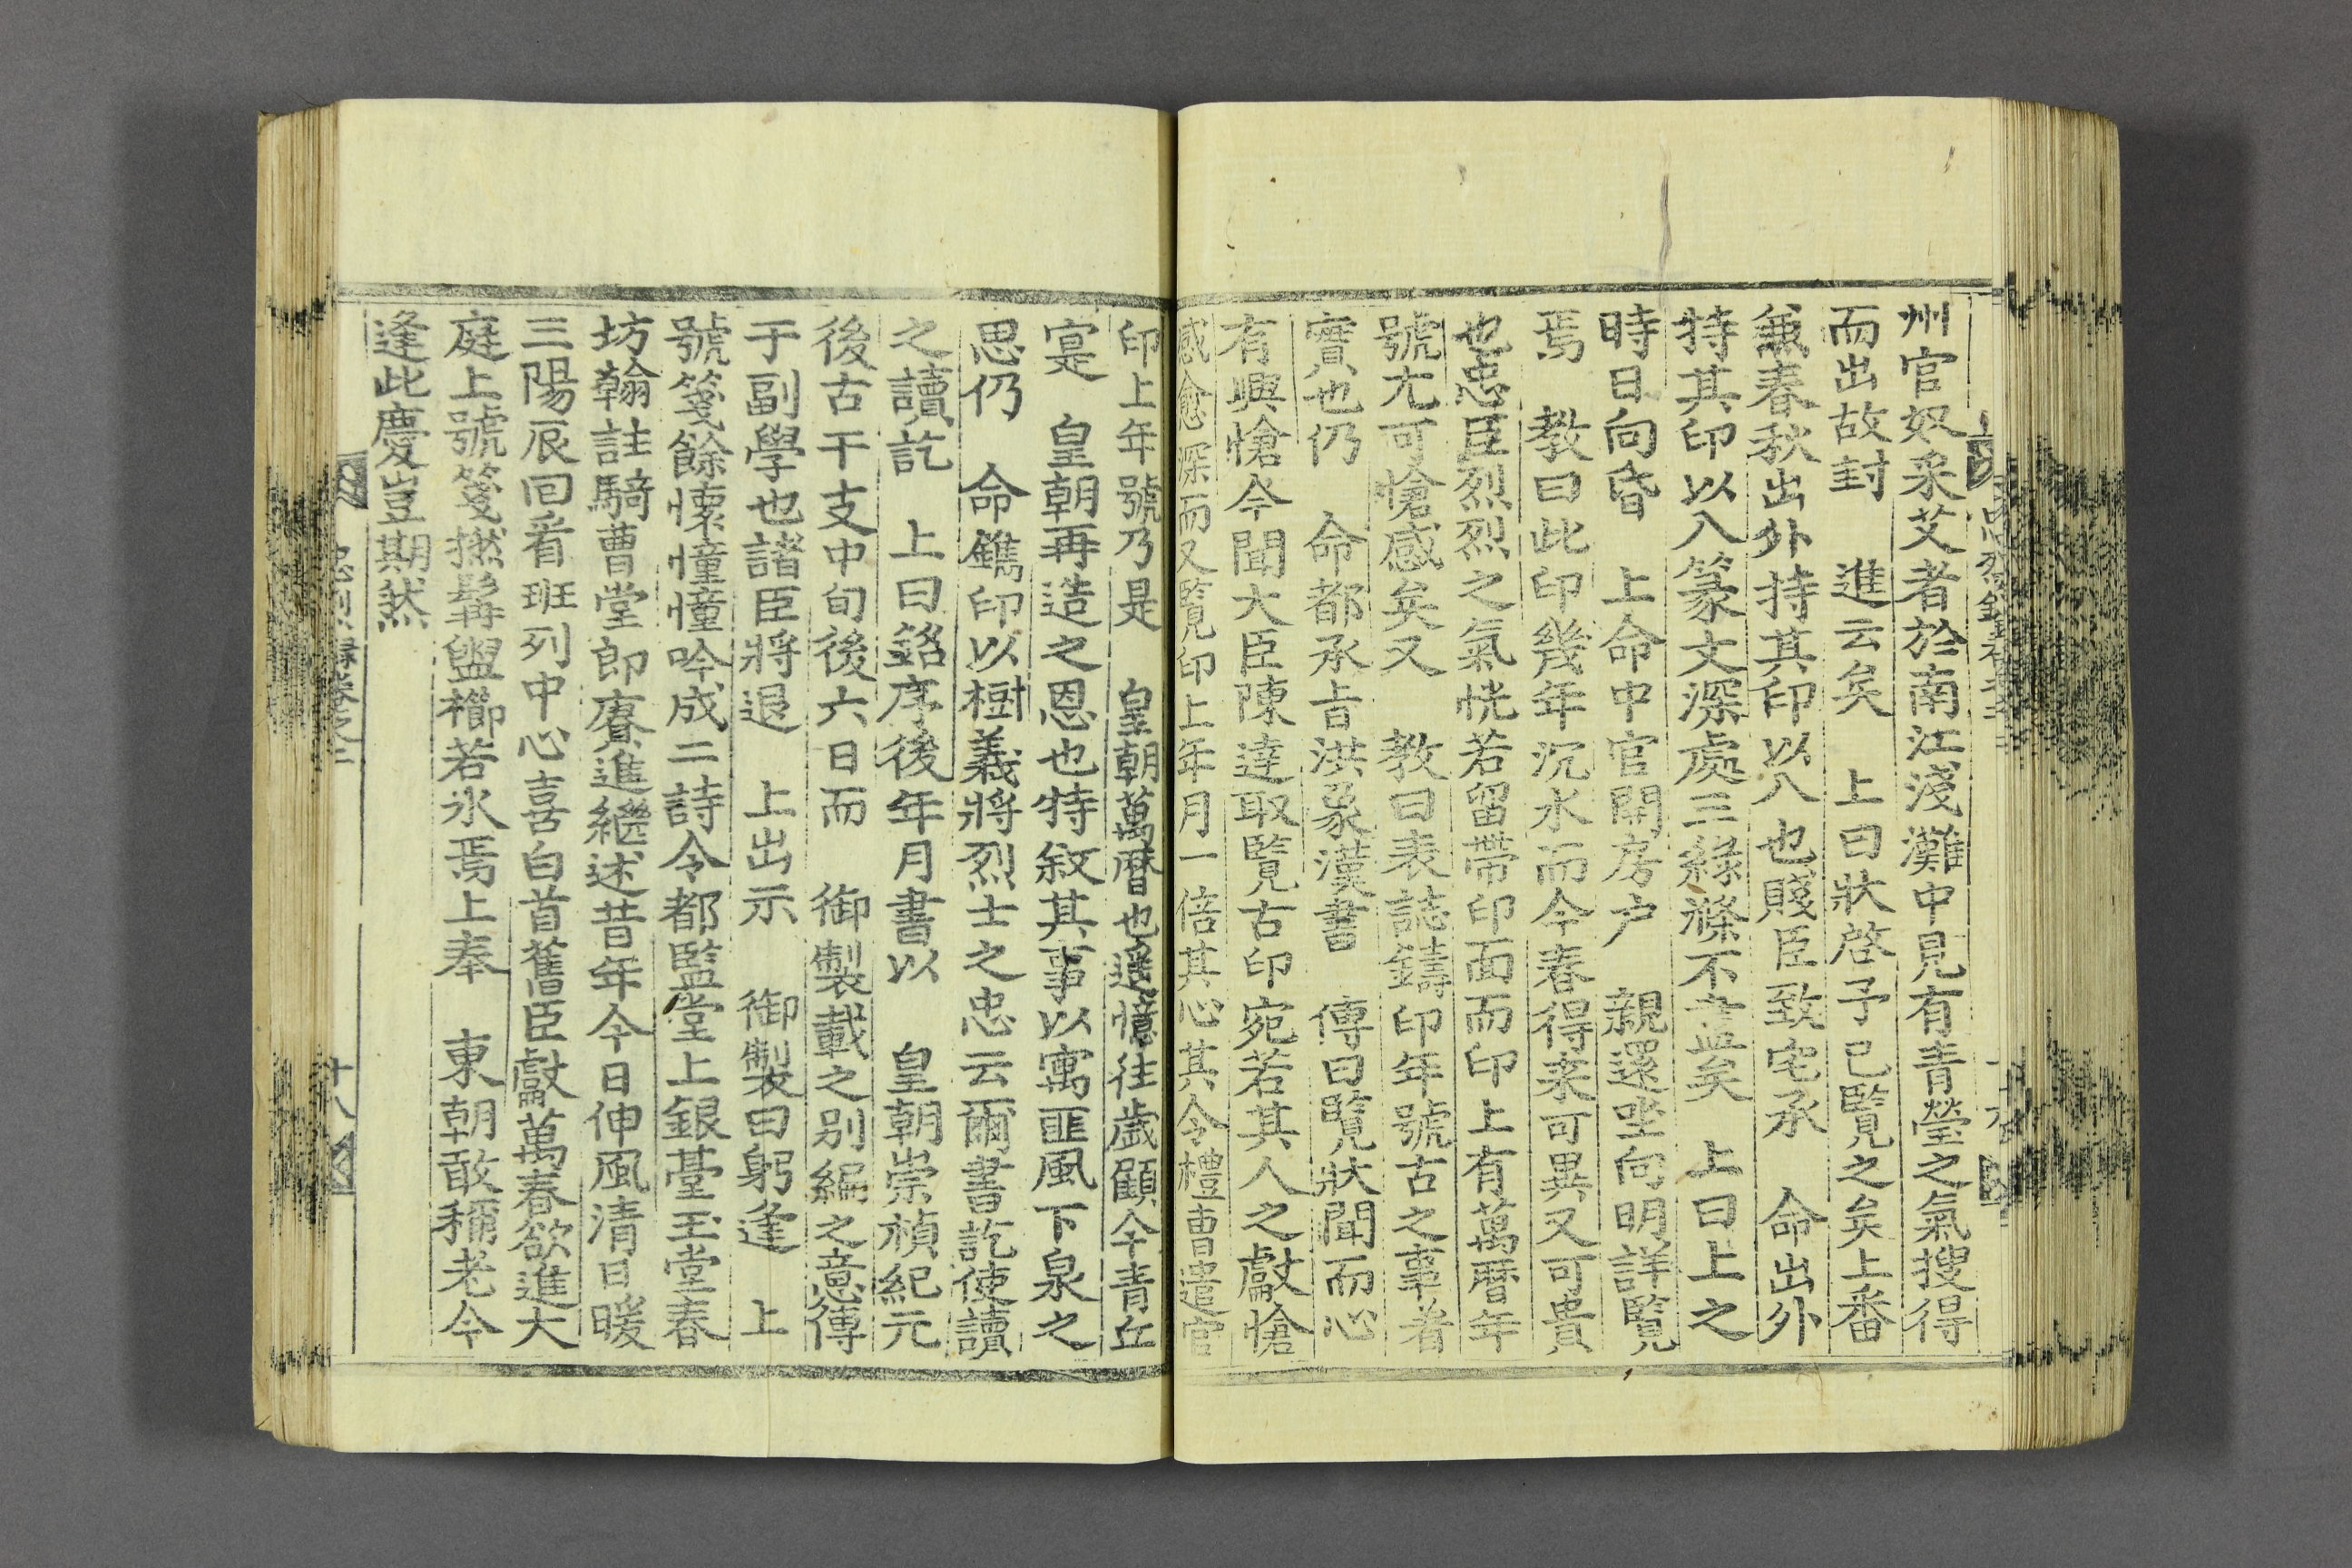 州官奴采艾者於南江淺灘中見有青瑩之氣搜得
而出故封 進云矣 上曰狀啓予已覽之矣上番
兼春秋出外持其印以入也賤臣致宅承 命出外
持其印以入篆文深處三綠滌不盡矣 上曰上之
時日向昏 上命中官開房户 親還坐向明詳覽
焉 教曰此印幾年沉水而今春得来可異又可貴
也忠臣烈烈之氣恍若留帶印面而印上有萬曆年
號尤可愴感矣又 教曰表誌鑄印年號古之事者
實也仍 命都承旨洪象漢書 傳曰覽狀聞而心
有興愴今聞大臣陳達取覽古印宛若其人之獻愴
感愈深而又覽印上年月一倍其心其令禮曹遣官
印上年號乃是 皇朝萬曆也遥憶往歲顧今青丘
寔 皇朝再造之恩也特敘其事以寓匪風下泉之
思仍 命鐫印以樹義將烈士之忠云爾書訖使讀
之讀訖 上曰銘序後年月書以 皇朝崇禎紀元
後古干支中旬後六日而 御製載之別編之意傳
于副學也諸臣將退 上出示 御製曰躬逢 上
號箋餘懷憧憧吟成二詩令都監堂上銀臺玉堂春
坊翰註騎曹堂郎賡進繼述昔年今日伸風清日暖
三陽辰回看班列中心喜白首舊臣獻萬春欲進大
庭上號箋撚髯盥櫛若氷焉上奉 東朝敢稱老今
逢此慶豈期然
忠烈録卷之二
十八